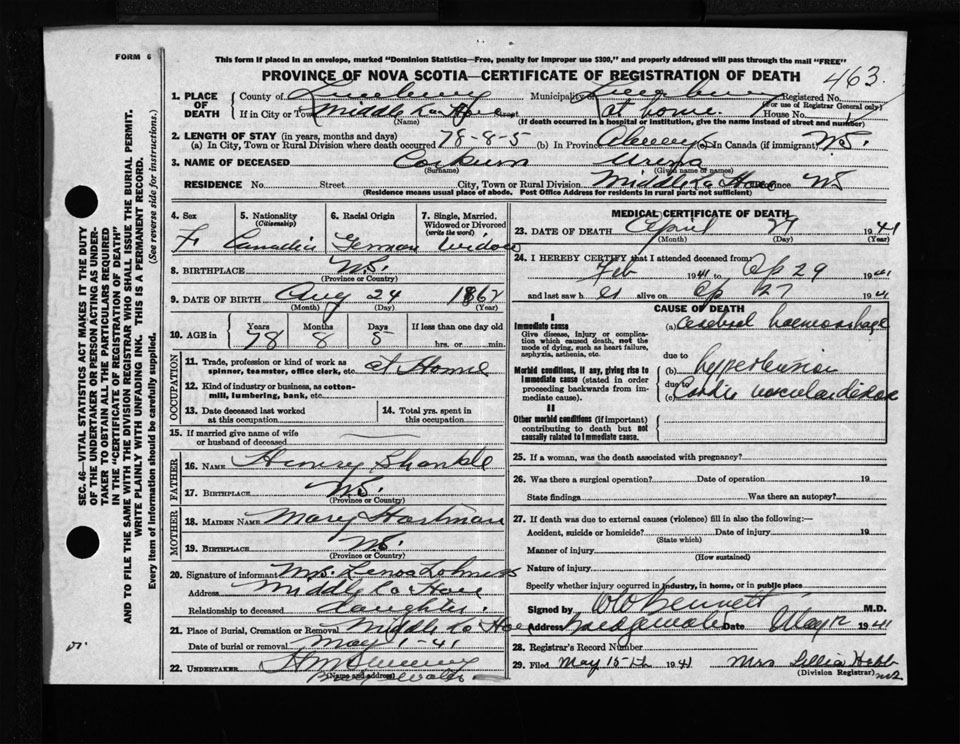 FORM 6
This form if placed in an envelope, marked "Dominion Statistics—Free, penalty for improper use $300," and properly addressed will pass through the mail "FREE"
PROVINCE OF NOVA SCOTIA—CERTIFICATE OF REGISTRATION OF DEATH
463
1. PLACE OF DEATH County of Lunenburg Municipality of Lunenburg Registered No.
(For use of Registrar General only)
If in City or Town Middle La Have Street at home House No.
(Name) (If death occurred in a hospital or institution, give the name instead of street and number)
2. LENGTH OF STAY (in years, months and days)
(a) In City, Town or Rural Division where death occurred 78-8-5 (b) In Province Always (c) In Canada (if immigrant) N.S.
3. NAME OF DECEASED Corkum Urena
(Surname) (Given name or names)
RESIDENCE No. Street City, Town or Rural Division Middle La Have Province NS
(Residence means usual place of abode. Post Office Address for residents in rural parts not sufficient)
4. Sex F
5. Nationality (Citizenship) Canadia
6. Racial Origin German
7. Single, Married, Widowed or Divorced (write the word) Widow
8. BIRTHPLACE N.S.
(Province or Country)
9. DATE OF BIRTH Aug 24 1862
(Month) (Day) (Year)
10. AGE in Years 78 Months 8 Days 5 If less than one day old hrs. or min.
OCCUPATION
11. Trade, profession or kind of work as spinner, teamster, office clerk, etc. at Home
12. Kind of industry or business, as cotton-mill, lumbering, bank, etc.
13. Date deceased last worked at this occupation
14. Total yrs. spent in this occupation
15. If married give name of wife or husband of deceased
FATHER
16. NAME Henry Shankle
17. BIRTHPLACE N.S.
(Province or Country)
MOTHER
18. MAIDEN NAME Mary Hartman
19. BIRTHPLACE N.S.
(Province or Country)
20. Signature of informant Mrs. Lohness
Address Middle La Have
Relationship to deceased daughter.
21. Place of Burial, Cremation or Removal Middle La Have
Date of burial or removal May 1-41
22. UNDERTAKER H M Sweeny
(Name and address)
Bridgewater
MEDICAL CERTIFICATE OF DEATH
23. DATE OF DEATH April 29 1941
(Month) (Day) (Year)
24. I HEREBY CERTIFY that I attended deceased from:
Feb 1941 to Ap 29 1941
and last saw h er alive on Ap 27 1941
CAUSE OF DEATH
I
Immediate cause
Give disease, injury or complication which caused death, not the mode of dying, such as heart failure, asphyxia, asthenia, etc.
(a) Cerebral haemorrhage
due to
Morbid conditions, if any, giving rise to immediate cause (stated in order proceeding backwards from immediate).
(b) hypertension
due to
(c) Cardio vascular disease
II
Other morbid conditions (if important) contributing to death but not causally related to immediate cause.
25. If a woman, was the death associated with pregnancy?
26. Was there a surgical operation? Date of operation 19
State findings Was there an autopsy?
27. If death was due to external causes (violence) fill in also the following:—
Accident, suicide or homicide? Date of injury 19
(State which)
Manner of injury
(How sustained)
Nature of injury
Specify whether injury occurred in industry, in home, or in public place
Signed by Bennett M.D.
Address Bridgewater Date May 12 1941
28. Registrar's Record Number
29. Filed May 15th 1941 Mrs Lillia Hebb
(Division Registrar)
SEC. 46—VITAL STATISTICS ACT MAKES IT THE DUTY OF THE UNDERTAKER OR PERSON ACTING AS UNDERTAKER TO OBTAIN ALL THE PARTICULARS REQUIRED IN THE "CERTIFICATE OF REGISTRATION OF DEATH" AND TO FILE THE SAME WITH THE DIVISION REGISTRAR WHO SHALL ISSUE THE BURIAL PERMIT.
WRITE PLAINLY WITH UNFADING INK. THIS IS A PERMANENT RECORD.
Every item of information should be carefully supplied. (See reverse side for instructions.)